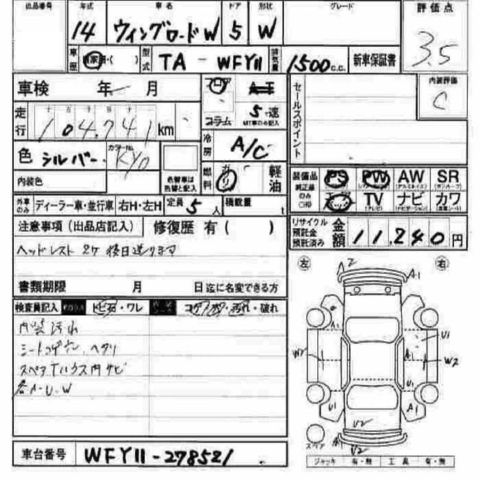 出品番号 年式 車名 ドア 形状 グレード 評価点
14 ウィングロードW 5 W 3.5
車歴 自家用・( ) 型式 TA - WFY11 排気量 1500 c.c. 新車保証書
車検 年 月 フロア AT
内装評価 C
コラム 5速
セールスポイント
走行 104,741 km
冷房 A/C
色 シルバー カラーNo. KY0
燃料 ガソリン 軽油
内装色
装備品 PS PW AW SR
TV ナビ カワ
外車のみ ディーラー車・並行車 右H・左H 定員 5人 積載量 t
リサイクル預託金 預託済み 金額 11,240円
注意事項(出品店記入) 修復歴 有( )
ヘッドレスト2ケ 後日送ります
左 右
A2 A1
書類期限 月 日迄に名変できる方
検査員記入 トビ石・ワレ コゲ・穴・汚れ・破れ
内装汚れ
シートコゲ穴、ヘタリ
スペアTハウス内サビ
各A・U・W
A1 U1
W1 W2
A1
U1 U1 A1
スペア V2
V2
車台番号 WFY11-278521
ジャッキ 有・無 工具 有・無